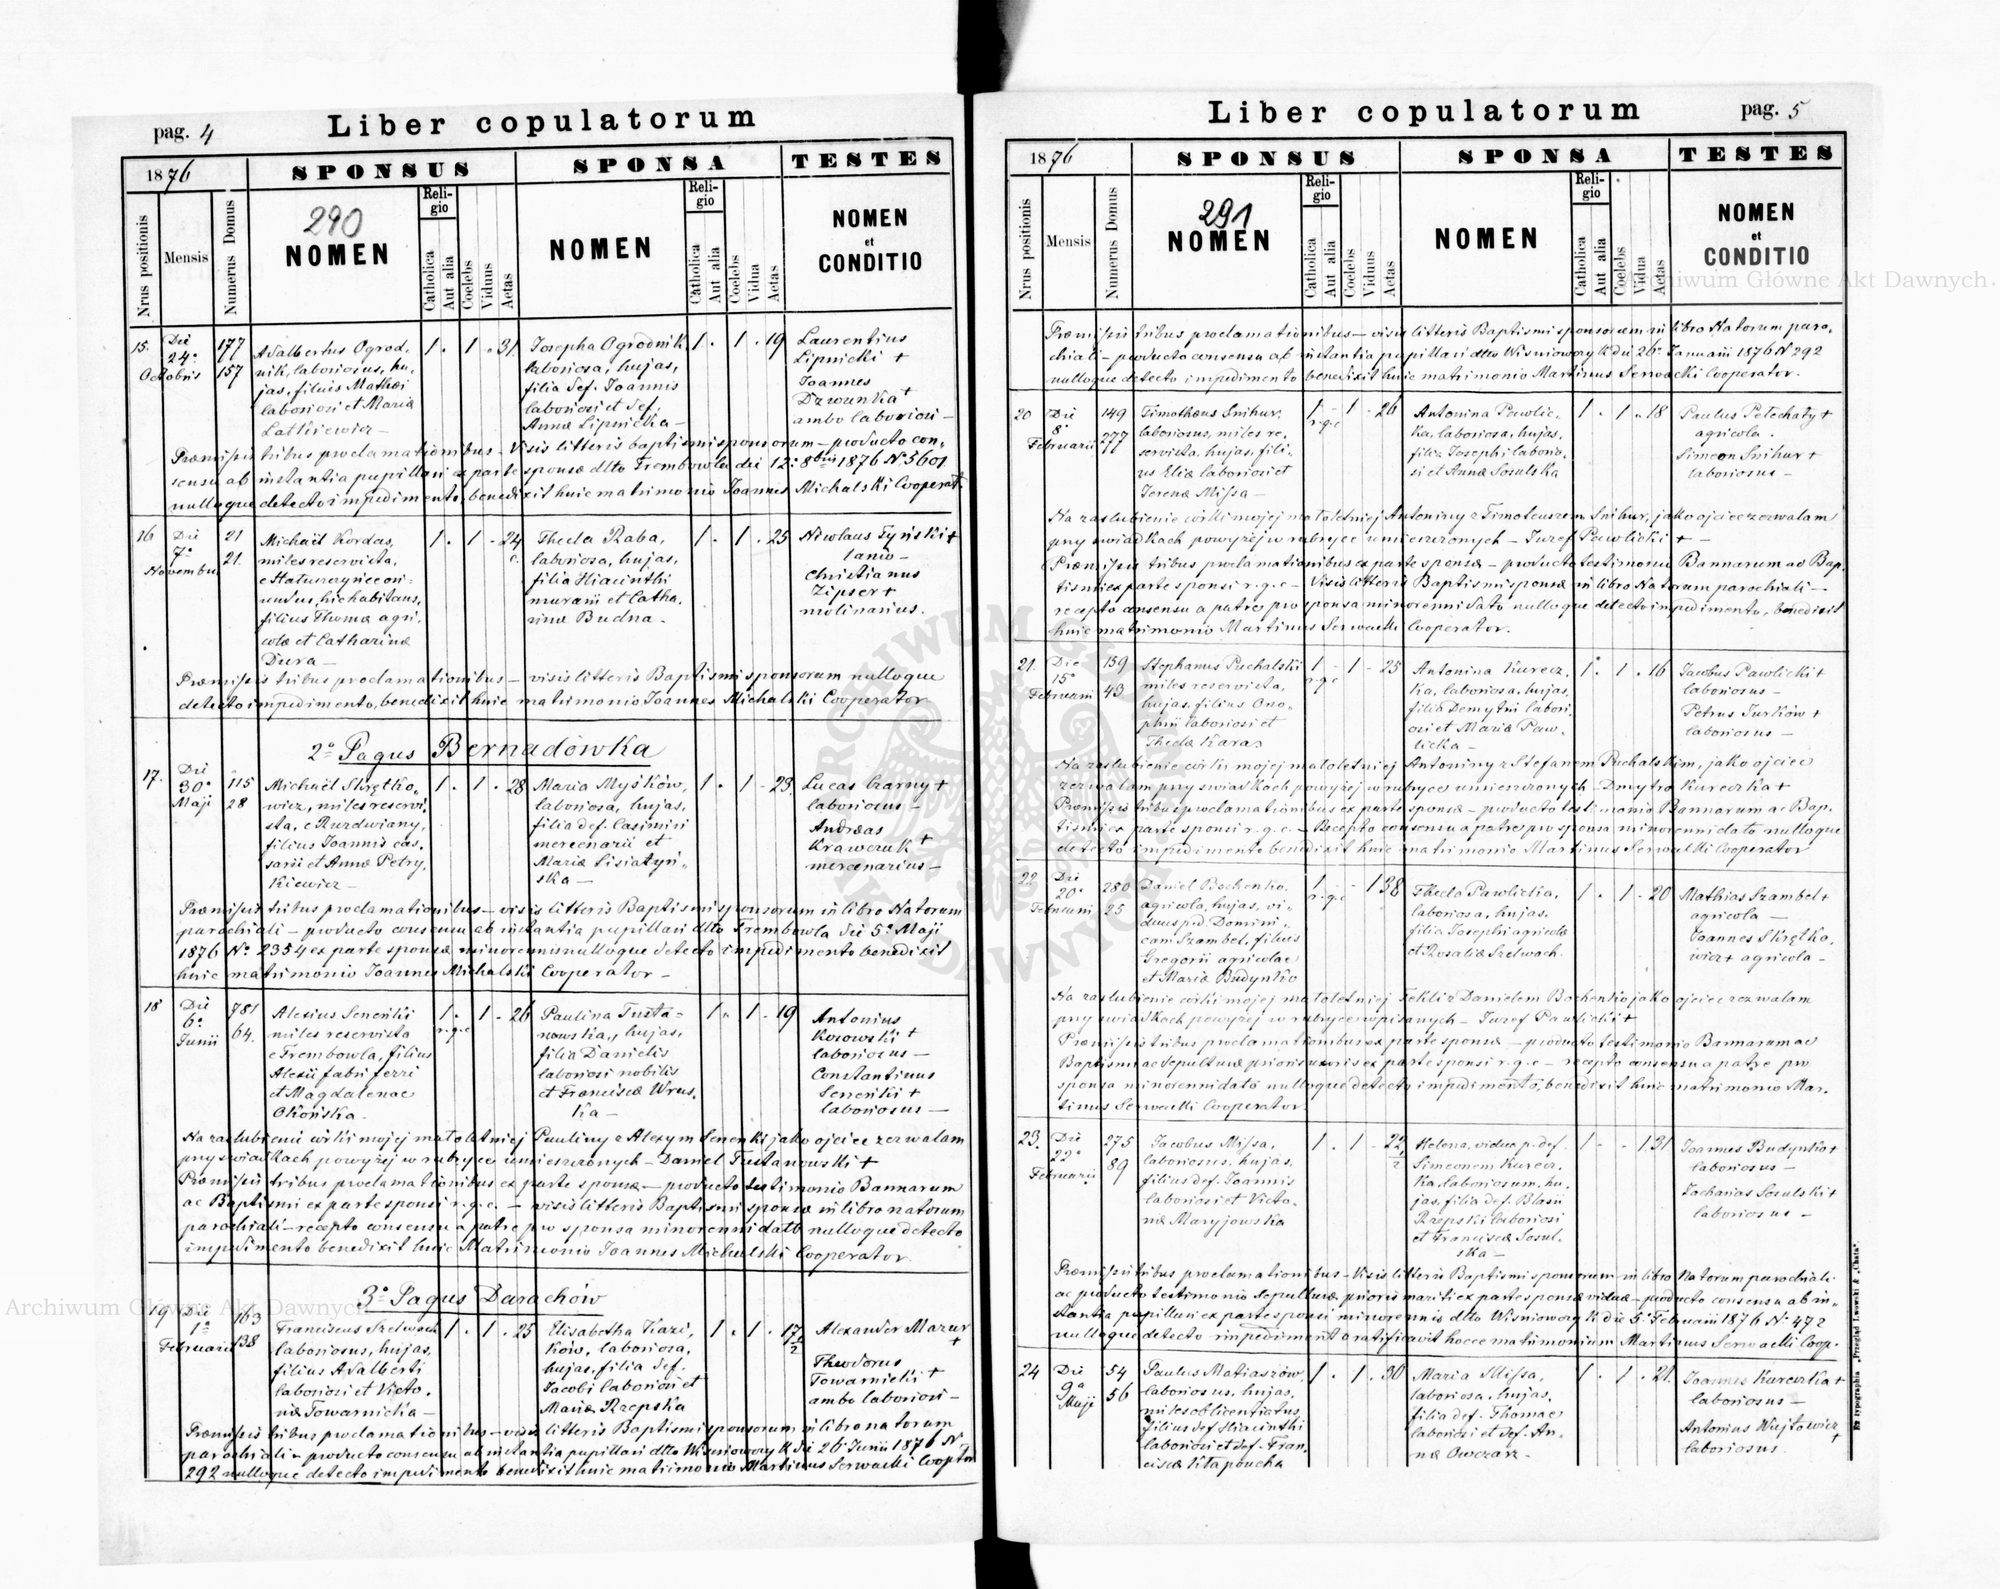 pag. 4
Liber copulatorum
1876
SPONSUS
SPONSA
TESTES
Nrus positionis
Mensis
Numerus Domus
290
NOMEN
Religio
Catholica
Aut alia
Coelebs
Viduus
Aetas
NOMEN
Religio
Catholica
Aut alia
Coelebs
Vidua
Aetas
NOMEN
et
CONDITIO
15.
Die
24ª
Octobris
177
157
Adalbertus Ogrod.
nik, laboriosus, hu,
jas, filius Mathæi
laboriosi et Mariæ
Latkiewicz —
1 . 1 . 31
Josepha Ogrodnik
laboriosa, hujas,
filia def. Joannis
laboriosi et def.
Annæ Lipnicka —
1 . 1 . 19
Laurentius
Lipnicki +
Joannes
Dzwonka +
ambo laboriosi —
Præmissis tribus proclamationibus — Visis litteris baptismi sponsorum — producto con,
sensu ab instantia pupillari ex parte sponsæ dtto Trembowla die 12ª 8bris 1876 N. 5601
nulloque detecto impedimento, benedixit huic matrimonio Joannes Michalski Cooperat.
16
Die
7ª
Novembris
21
21.
Michaël Kordas,
miles reservista,
filius Thomæ agri,
colæ et Catharinæ
Dura —
1 . 1 - 24
Thecla Raba,
laboriosa, hujas,
filia Hiacinthi
murarii et Catha,
rinæ Budna —
1 . 1 . 25
Nicolaus Tyński +
lanio —
Christianus
Zipser +
molinarius.
Præmissis tribus proclamationibus — visis litteris Baptismi sponsorum nulloque
detecto impedimento, benedixit huic matrimonio Joannes Michalski Cooperator
2º Pagus Bernadówka
17.
Die
30ª
Maji
115
28
Michaël Skrętko,
wicz, miles reservi,
sta, e Ruzdwiany,
filius Joannis cas,
sarii et Annæ Petry,
kiewicz —
1 . 1 . 28
Maria Myśków,
laboriosa, hujas,
filia def. Casimiri
mercenarii et
Mariæ Lisiatyń,
ska —
1 . 1 - 23
Lucas Czarny +
laboriosus —
Andræas
Krawczuk +
mercenarius —
Præmissis tribus proclamationibus — visis litteris Baptismi sponsorum in libro Natorum
parochiali — producto consensu ab instantia pupillari dtto Trembowla die 5ª Maji
1876 Nº 2354 ex parte sponsæ minorennis nulloque detecto impedimento benedixit
huic matrimonio Joannes Michalski Cooperator —
18
Die
6ª
Junii
781
64.
Alexius Senenki
miles reservista
e Trembowla, filius
Alexii fabri ferri
et Magdalenae
Okońska —
1 . 1 - 26
r.g.c
Paulina Tusta-
nowska, hujas,
filia Danielis
laboriosi nobilis
et Franciscæ Wrus,
ka —
1 . 1 - 19
Antonius
Kosowski +
laboriosus —
Constantinus
Senenki +
laboriosus —
Na zaślubienie córki mojej małoletniej Pauliny z Alexym Senenki jako ojciec zezwalam
przy świadkach powyżej w rubryce umieszczonych — Daniel Tustanowski +
Præmissis tribus proclamationibus ex parte sponsæ — producto testimonio Bannorum
ac Baptismi ex parte sponsi r.g.c. — visis litteris Baptismi sponsæ in libro natorum
parochiali — recepto consensu a patre pro sponsa minorenni dato nulloque detecto
impedimento benedixit huic Matrimonio Joannes Michalski Cooperator.
3º Pagus Darachów
19
Die
1ª
Februarii
163
138
Franciscus Szelwach
laboriosus, hujas,
filius Adalberti
laboriosi et Victo,
riæ Towarnicka —
1 . 1 . 25
Elisabetha Kazi,
ków, laboriosa,
hujas, filia def.
Jacobi laboriosi et
Mariæ Rzepska
1 . 1 . 17 ½
Alexander Mazur
+
Theodorus
Towarnicki +
ambo laboriosi —
Præmissis tribus proclamationibus — visis litteris Baptismi sponsorum in libro natorum
parochiali — producto consensu ab instantia pupillari dtto Wiśniowczyk die 26 Junii 1876 N
292 nulloque detecto impedimento benedixit huic matrimonio Martinus Serwacki Cooptor
pag. 5
Liber copulatorum
1876
SPONSUS
SPONSA
TESTES
Nrus positionis
Mensis
Numerus Domus
291
NOMEN
Religio
Catholica
Aut alia
Coelebs
Viduus
Aetas
NOMEN
Religio
Catholica
Aut alia
Coelebs
Vidua
Aetas
NOMEN
et
CONDITIO
Præmissis tribus proclamationibus — visis litteris Baptismi sponsorum in libro Natorum paro,
chiali — producto consensu ab instantia pupillari dtto Wiśniowczyk die 26ª Januarii 1876 N 292
nulloque detecto impedimento benedixit huic matrimonio Martinus Serwacki Cooperator.
20
Die
8ª
Februarii
149
277
Timothæus Snihur,
laboriosus, miles re,
servista, hujas, fili,
us Eliæ laboriosi et
Irenæ Missa —
1 - 1 - 26
r.g.c
Antonina Pawlic,
ka, laboriosa, hujas,
filia Josephi laborio,
si et Annæ Sosulska
1 . 1 . 18
Paulus Pelechaty +
agricola .
Simeon Snihur +
laboriosus —
Na zaślubienie córki mojej małoletniej Antoniny z Timoteuszem Snihur, jako ojciec zezwalam
przy świadkach powyżej w rubryce umieszczonych — Jozef Pawlicki + —
Præmissis tribus proclamationibus ex parte sponsæ — producto testimonio Bannorum ac Bap,
tismi ex parte sponsi r.g.c — Visis litteris Baptismi sponsæ in libro Natorum parochiali —
recepto consensu a patre pro sponsa minorenni dato nulloque detecto impedimento, benedixit
huic matrimonio Martinus Serwacki Cooperator.
21.
Die
15ª
Februarii
159
43
Stephanus Puchalski
miles reservista,
hujas, filius Ono,
phrii laboriosi et
Theclæ Karas
1 - 1 - 25
r.g.c
Antonina Kurecz,
ka, laboriosa, hujas,
filia Demytri labori,
osi et Mariæ Paw,
licka —
1 . 1 . 16
Jacobus Pawlicki +
laboriosus —
Petrus Jurków +
laboriosus —
Na zaślubienie córki mojej małoletniej Antoniny z Stefanem Puchalskim, jako ojciec
zezwalam przy świadkach powyżej w rubryce umieszczonych — Dmytro Kureczka +
Præmissis tribus proclamationibus ex parte sponsæ — producto testimonio Bannorum ac Bap,
tismi ex parte sponsi r.g.c. — Recepto consensu a patre pro sponsa minorenni dato nulloque
detecto impedimento benedixit huic matrimonio Martinus Serwacki Cooperator
22
Die
20ª
Februarii
280
25
Daniel Bochenko,
agricola, hujas, vi,
duus p.d. Domini,
cam Szambel, filius
Gregorii agricolae
et Mariæ Budynko
1 - - 1 38
r.g.c
Thecla Pawlicka,
laboriosa, hujas,
filia Josephi agricolæ
et Rosaliæ Szelwach.
1 . 1 - 20
Mathias Szambel +
agricola —
Joannes Skrętko,
wicz + agricola —
Na zaślubienie córki mojej małoletniej Tekli z Danielem Bochenko jako ojciec zezwalam
przy świadkach powyżej w rubryce wpisanych — Jozef Pawlicki +
Præmissis tribus proclamationibus ex parte sponsæ — producto testimonio Bannorum ac
Baptismi ac sepulturæ prioris uxoris ex parte sponsi r.g.c — recepto consensu a patre pro
sponsa minorenni dato nulloque detecto impedimento, benedixit huic matrimonio Mar,
tinus Serwacki Cooperator.
23.
Die
22ª
Februarii
275
89
Jacobus Missa,
laboriosus, hujas,
filius def. Joannis
laboriosi et Victo,
riæ Maryjowska
1 . 1 - 22 ½
Helena, vidua p. def.
Simeonem Kurecz,
ka, laboriosum, hu,
jas, filia def. Blasii
Rzepski laboriosi
et Franciscæ Sosul,
ska —
1 - - 1 31
Joannes Budynko +
laboriosus —
Zacharias Sosulski +
laboriosus —
Præmissis tribus proclamationibus — Visis litteris Baptismi sponsorum in libro Natorum parochiali
ac producto testimonio sepulturæ prioris mariti ex parte sponsæ viduæ — producto consensu ab in,
stantia pupillari ex parte sponsi minorennis dtto Wiśniowczyk die 5ª Februarii 1876 N. 472
nulloque detecto impedimento ratificavit hocce matrimonium Martinus Serwacki Coop.
24
Die
9ª
Maji
54
56
Paulus Matiaszów,
laboriosus, hujas,
filius def Hiacinthi
laboriosi et def. Fran,
ciscæ Kitaponcha
1 . 1 . 30
Maria Missa,
laboriosa, hujas,
filia def. Thomae
laboriosi et def. An,
næ Owczarz —
1 . 1 . 21.
Joannes Kureczka +
laboriosus —
Antonius Wujtowicz
+
laboriosus
Ex typographia „Przegląd Lwowski & „Chata".
Archiwum Główne Akt Dawnych
Archiwum Główne Akt Dawnych
ARCHIWUM GŁÓWNE AKT DAWNYCH